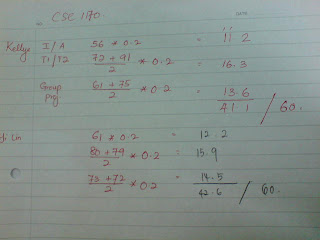 CSC 1170.
Kellye I/A 56 * 0.2 = 11.2
T1/T2 72 + 91 / 2 * 0.2 = 16.3
Group proj 61 + 75 / 2 * 0.2 = 13.6
41.1 / 60.
61 * 0.2 = 12.2
80 + 79 / 2 * 0.2 = 15.9
73 + 72 / 2 * 0.2 = 14.5
42.6 / 60.